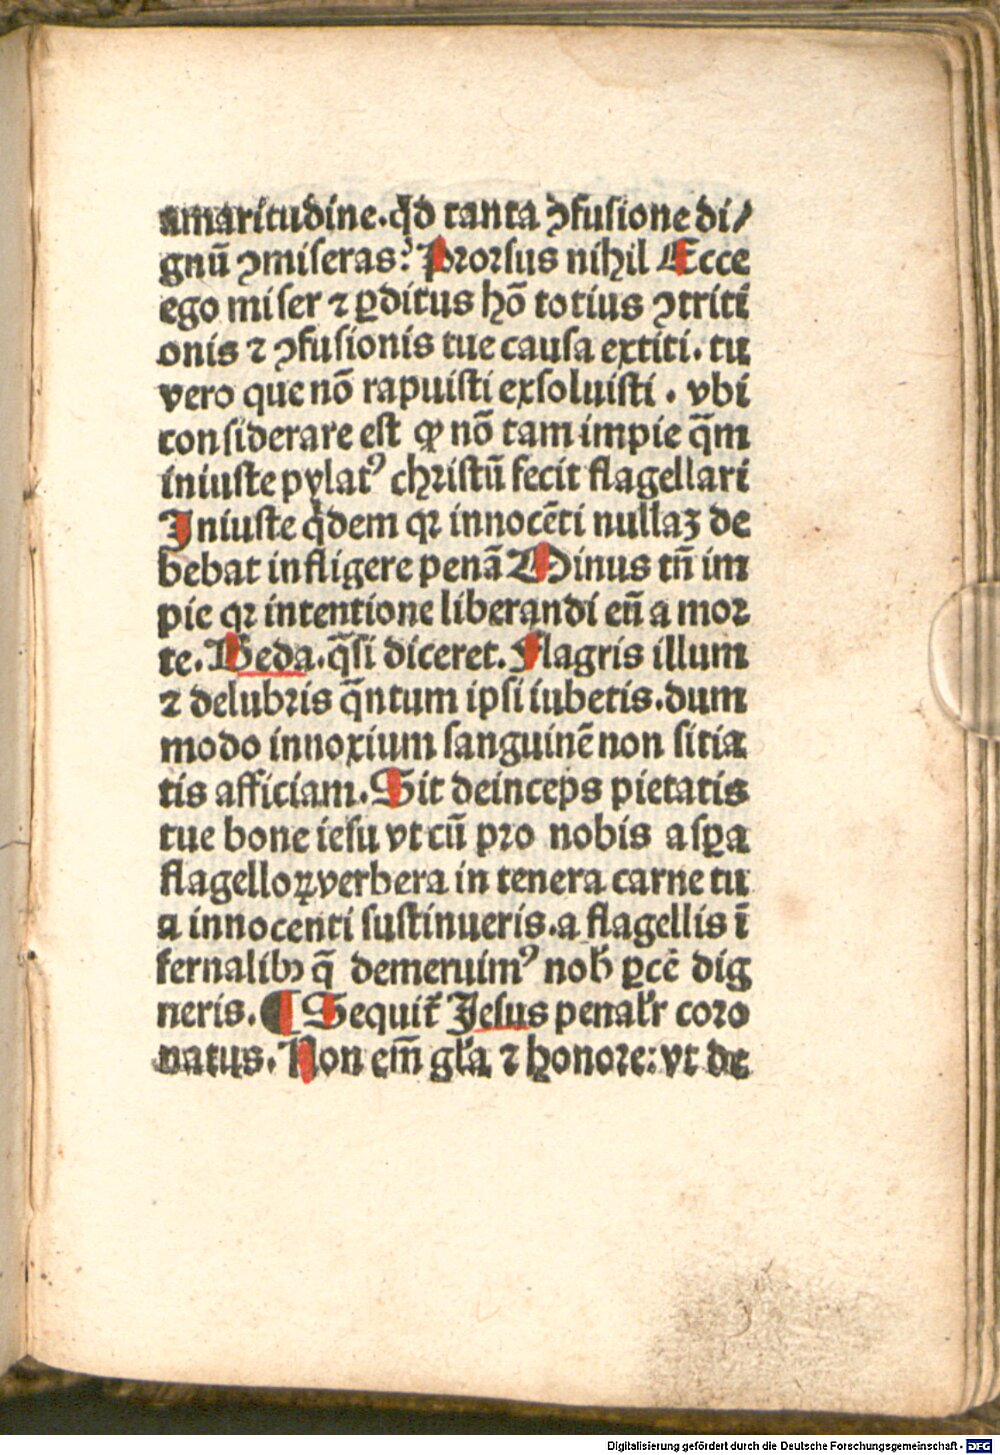 amaritudine.qď tanta ꝯfusione di/
gnū ꝯmiseras? Prorsus nihil Ecce
ego miser ⁊ ꝑditus hō totius ꝯtriti
onis ⁊ ꝯfusionis tue causa extiti. tu
vero que nō rapuisti exsoluisti . vbi
considerare est ꝙ nō tam impie q̄m
iniuste pylatꝰ christū fecit flagellari
Iniuste q̇dem qꝛ innocēti nullaꝫ de
bebat infligere penā Minus tn̄ im
pie qꝛ intentione liberandi eū a mor
te. Beda.q̄si diceret. Flagris illum
⁊ delubris q̄ntum ipsi iubetis.dum
modo innoxium sanguinē non sitia
tis afficiam. Sit deinceps pietatis
tue bone iesu vt cū pro nobis asꝑa
flagelloꝝ verbera in tenera carne tu
a innocenti sustinueris.a flagellis ī
fernalibꝰ q̄ demeruimꝰ nob̄ ꝑcē dig
neris. ¶ Sequit̄ Jesus penalr̄ coro
natus. Non em̄ gl̄a ⁊ honore: vt de
Digitalisierung gefördert durch die Deutsche Forschungsgemeinschaft - DFG